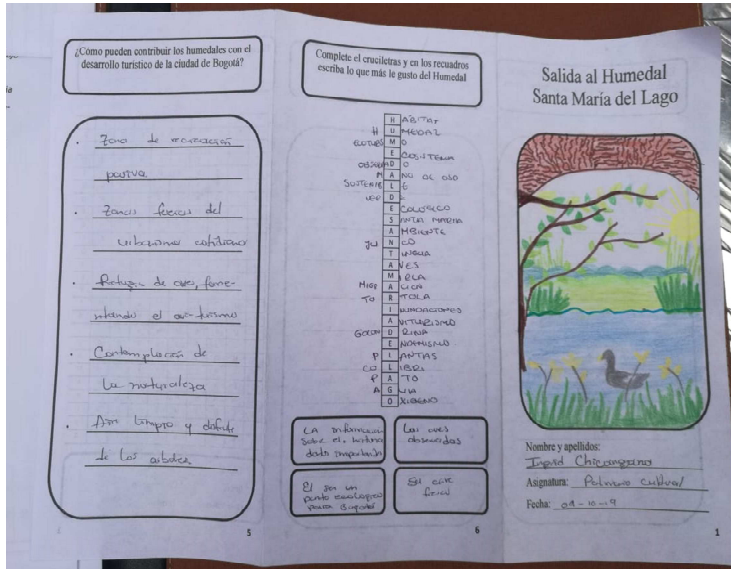 ¿Como pueden contribuir los humedales con el
desarrollo turístico de la ciudad de Bogotá?
Zona de recreación
pasiva
Zonas frescas del
urbanismo cotidiano
Refugio de aves, fome-
ntando el avi-turismo
Contemplación de
la naturaleza
Aire limpio y disfrute
de los arboles
5
Complete el cruciletras y en los recuadros
escriba lo que más le gusto del Humedal
HABITAT
HUMEDAL
ECOTURISMO
ECOSISTEMA
OBSERVADO
MANO DE OSO
SUSTENIBLE
VERDE
ECOLOGICO
SANTA MARIA
AMBIENTE
JUNCO
TINGUA
AVES
MIRLA
MIGRA
TORTOLA
INUNDACIONES
AVITURISMO
GOLONDRINA
ENDEMISMO
PLANTAS
COLIBRI
PATO
AGUA
OXIGENO
LA información
sobre el
Las aves
observadas
El ser un
punto ecologico
para Bogotá
El aire
6
Salida al Humedal
Santa María del Lago
Nombre y apellidos:
Ingrid
Asignatura: Patrimonio Cultural
Fecha: 09-10-19
1